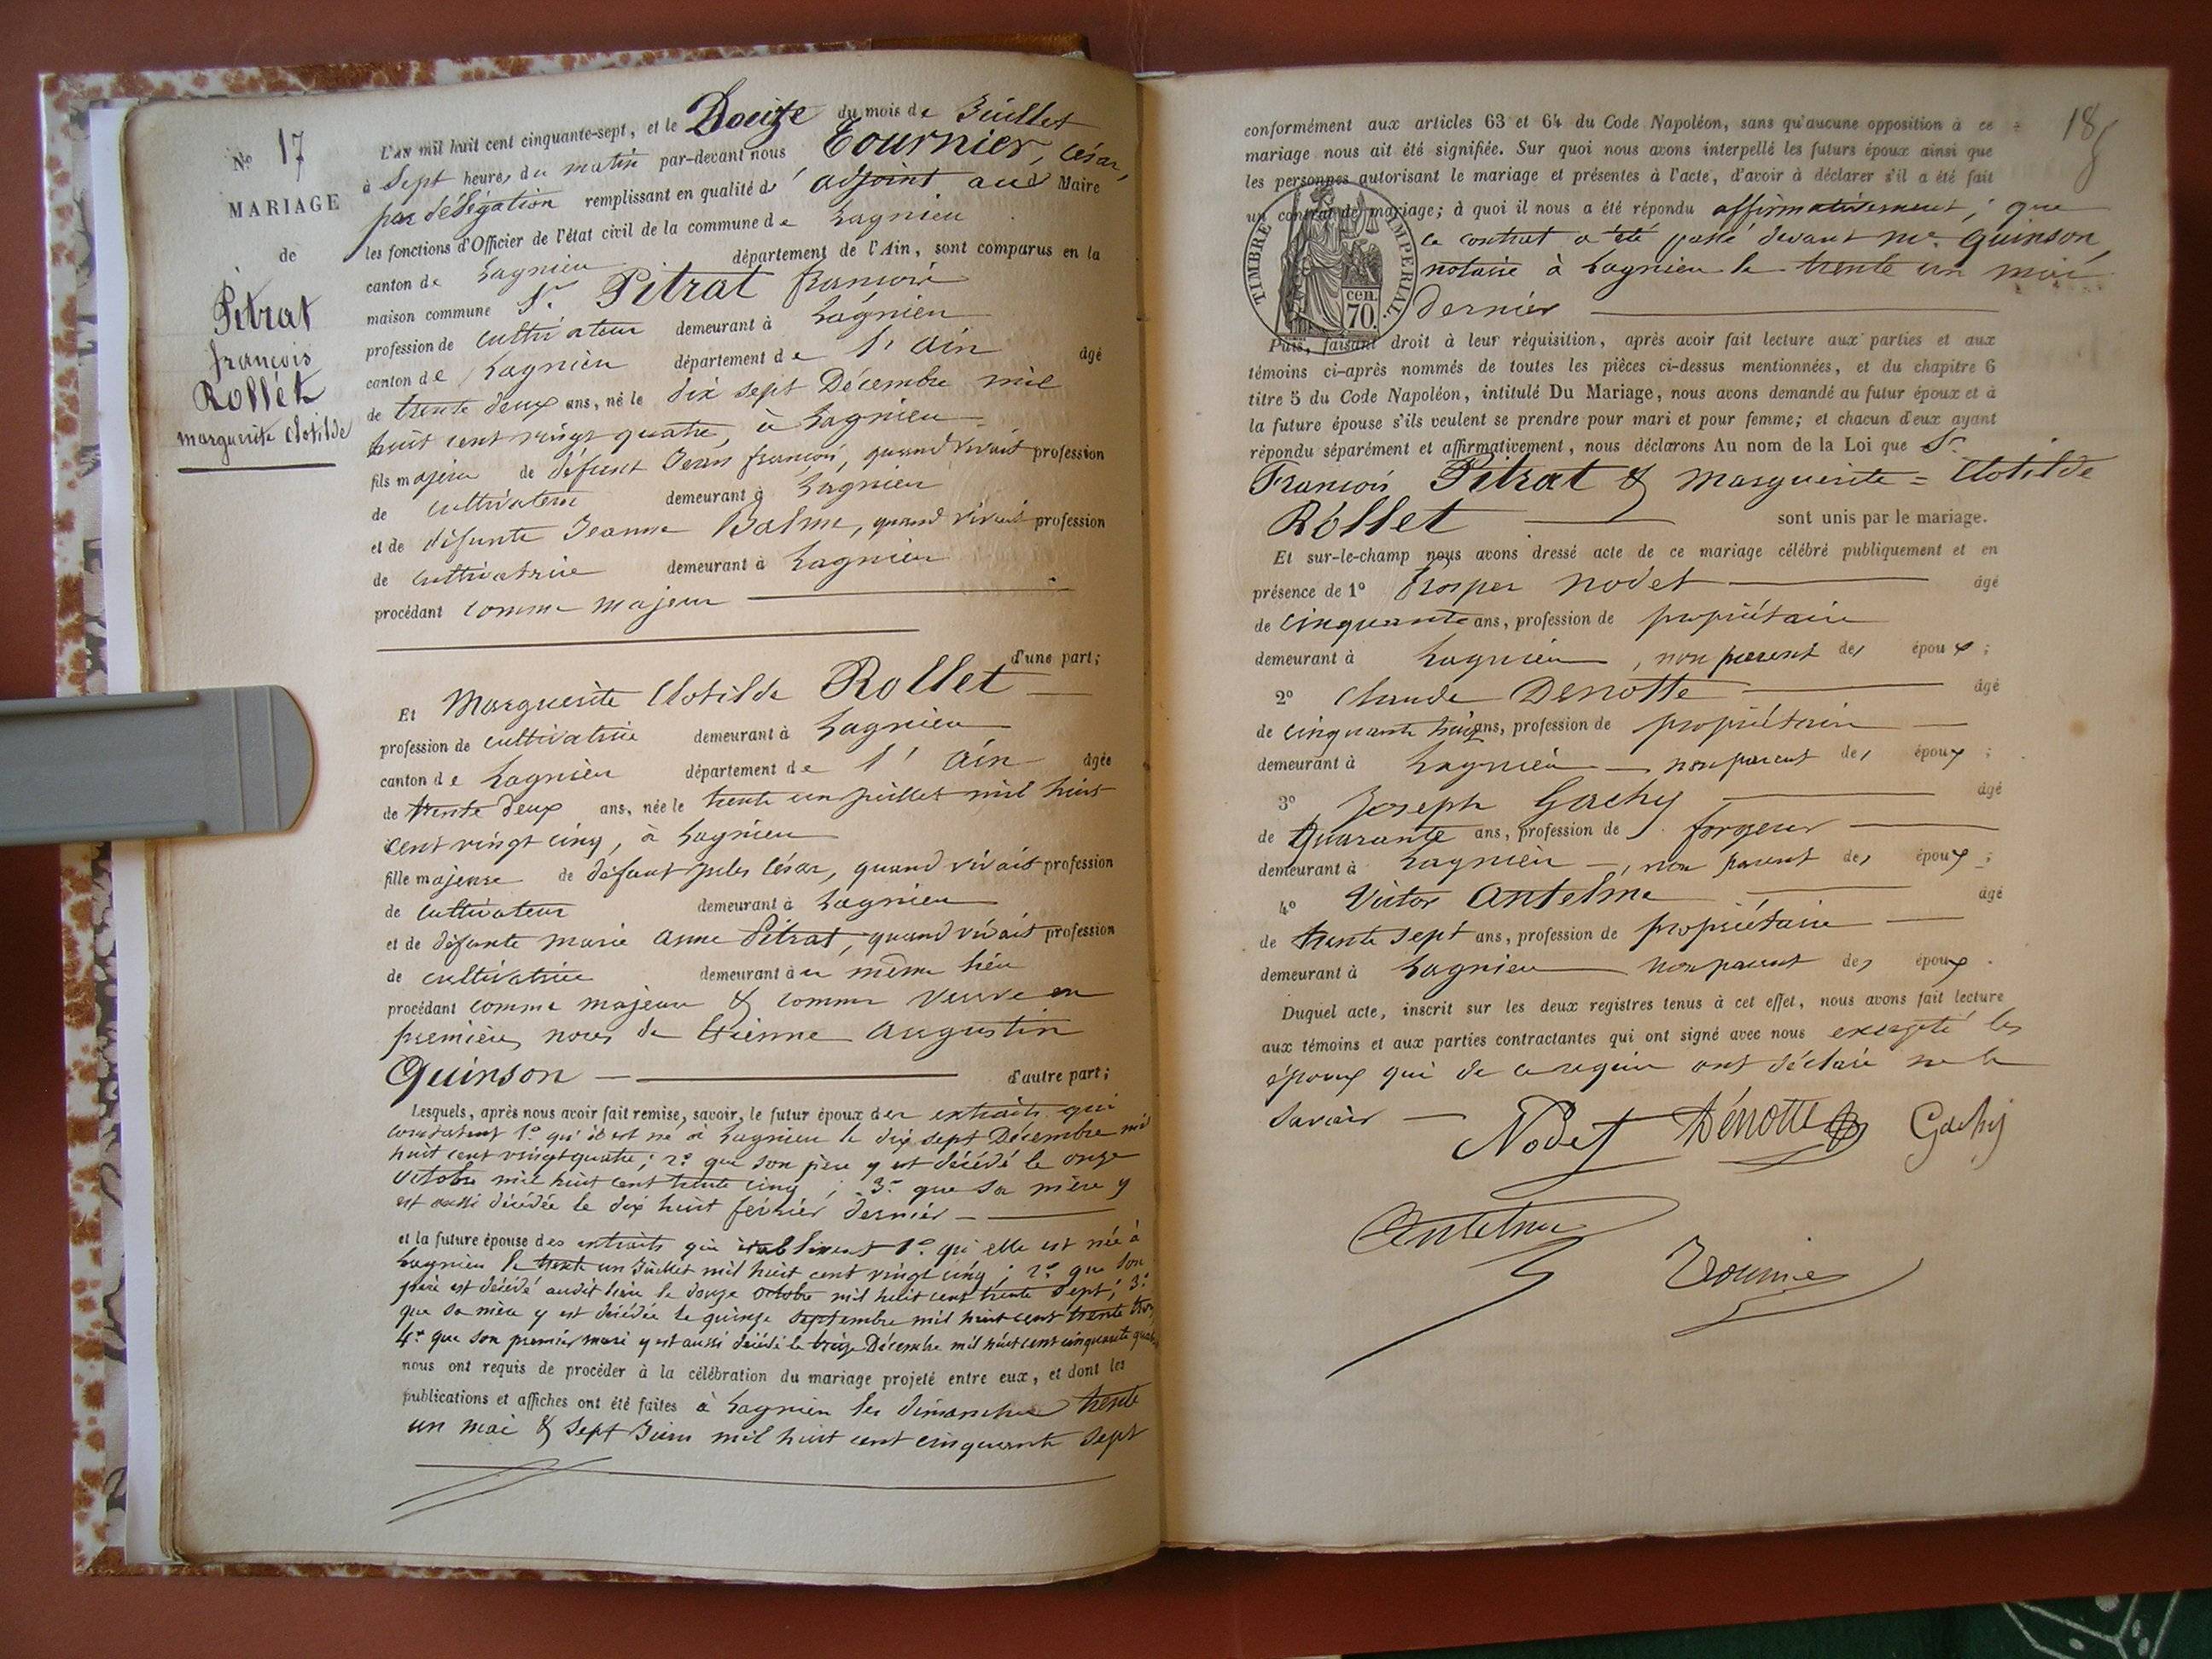 No 17
MARIAGE
de
Pitrat
françois
Rollet
marguerite Clotilde
L'an mil huit cent cinquante-sept, et le Douze du mois de Juillet
à Sept heures du matin par-devant nous Tournier, César,
par délégation remplissant en qualité d' adjoint aud Maire
les fonctions d'Officier de l'état civil de la commune de Lagnieu
canton de Lagnieu département de l'Ain, sont comparus en la
maison commune Sr. Pitrat françois
profession de cultivateur demeurant à Lagnieu
canton de Lagnieu département de l'Ain âgé
de trente deux ans, né le dix sept Décembre mil
huit cent vingt quatre, à Lagnieu
fils majeur de défunt Jean françois, quand vivait profession
de cultivateur demeurant à Lagnieu
et de défunte Jeanne Balme, quand vivait profession
de cultivatrice demeurant à Lagnieu
procédant comme majeur
d'une part;
Et Marguerite Clotilde Rollet
profession de cultivatrice demeurant à Lagnieu
canton de Lagnieu département de l'Ain âgée
de trente deux ans, née le trente un juillet mil huit
cent vingt cinq, à Lagnieu
fille majeure de défunt Jules César, quand vivait profession
de cultivateur demeurant à Lagnieu
et de défunte marie anne Pitrat, quand vivait profession
de cultivatrice demeurant au même lieu
procédant comme majeure & comme veuve en
premières noces de Etienne augustin
Quinson d'autre part;
Lesquels, après nous avoir fait remise, savoir, le futur époux des extraits qui
constatent 1o. qu'il est né à Lagnieu le dix sept Décembre mil
huit cent vingt quatre; 2o. que son père y est décédé le onze
octobre mil huit cent trente cinq; 3o. que sa mère y
est aussi décédée le dix huit février dernier
et la future épouse des extraits qui établissent 1o. qu'elle est née à
Lagnieu le trente un Juillet mil huit cent vingt cinq; 2o. que son
père est décédé audit lieu le douze octobre mil huit cent trente sept; 3o.
que sa mère y est décédée le quinze septembre mil huit cent trente trois
4o. que son premier mari y est aussi décédé le treize Décembre mil huit cent cinquante quatre
nous ont requis de procéder à la célébration du mariage projeté entre eux, et dont les
publications et affiches ont été faites à Lagnieu les dimanches trente
un mai & sept Juin mil huit cent cinquante sept
18
conformément aux articles 63 et 64 du Code Napoléon, sans qu'aucune opposition à ce
mariage nous ait été signifiée. Sur quoi nous avons interpellé les futurs époux ainsi que
les personnes autorisant le mariage et présentes à l'acte, d'avoir à déclarer s'il a été fait
un contrat de mariage; à quoi il nous a été répondu affirmativement, que
le contrat a été passé devant Me. Quinson,
notaire à Lagnieu le trente un mai
dernier
TIMBRE IMPERIAL
cen.
70.
Puis, faisant droit à leur réquisition, après avoir fait lecture aux parties et aux
témoins ci-après nommés de toutes les pièces ci-dessus mentionnées, et du chapitre 6
titre 5 du Code Napoléon, intitulé Du Mariage, nous avons demandé au futur époux et à
la future épouse s'ils veulent se prendre pour mari et pour femme; et chacun d'eux ayant
répondu séparément et affirmativement, nous déclarons Au nom de la Loi que Sr.
François Pitrat & Marguerite = Clotilde
Rollet sont unis par le mariage.
Et sur-le-champ nous avons dressé acte de ce mariage célébré publiquement et en
présence de 1o Prosper Nodet âgé
de cinquante ans, profession de propriétaire
demeurant à Lagnieu, non parent des époux;
2o Claude Denotte âgé
de cinquante huit ans, profession de propriétaire
demeurant à Lagnieu non parent des époux;
3o Joseph Gachy âgé
de Quarante ans, profession de forgeur
demeurant à Lagnieu, non parent des époux;
4o Victor Antelme âgé
de trente sept ans, profession de propriétaire
demeurant à Lagnieu non parent des époux.
Duquel acte, inscrit sur les deux registres tenus à cet effet, nous avons fait lecture
aux témoins et aux parties contractantes qui ont signé avec nous excepté les
époux qui de ce requis ont déclaré ne le
savoir
Nodet Dénotte Gachy
Antelme
Tournier